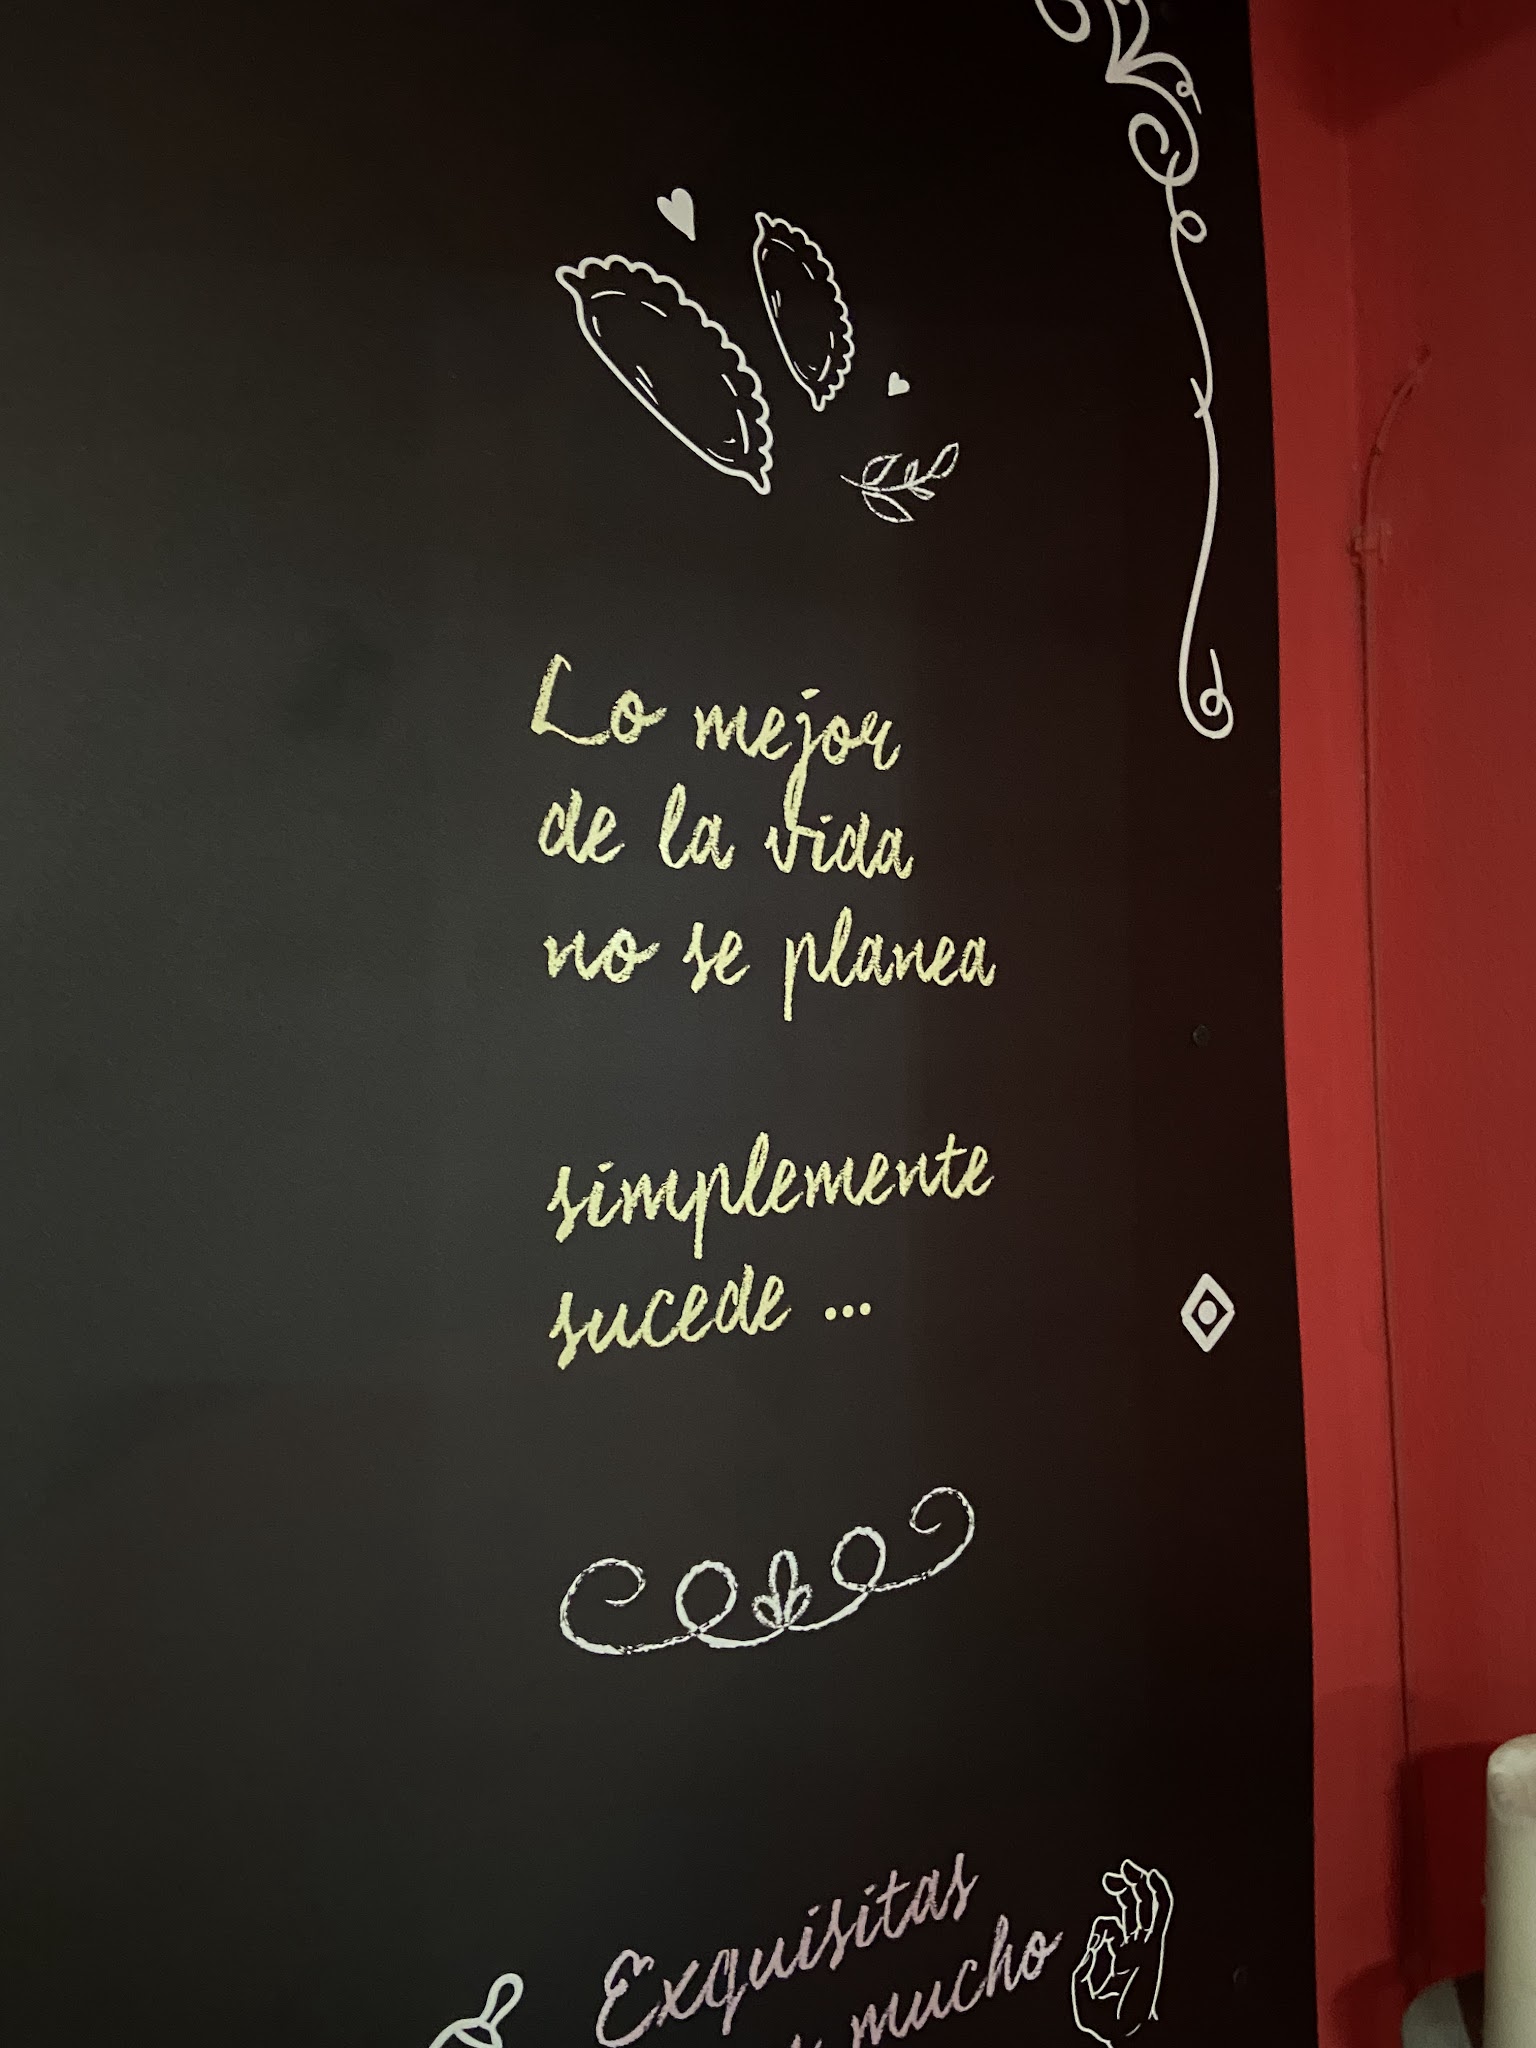 Lo mejor
de la vida
no se planea
simplemente
sucede ...
Exquisitas
mucho